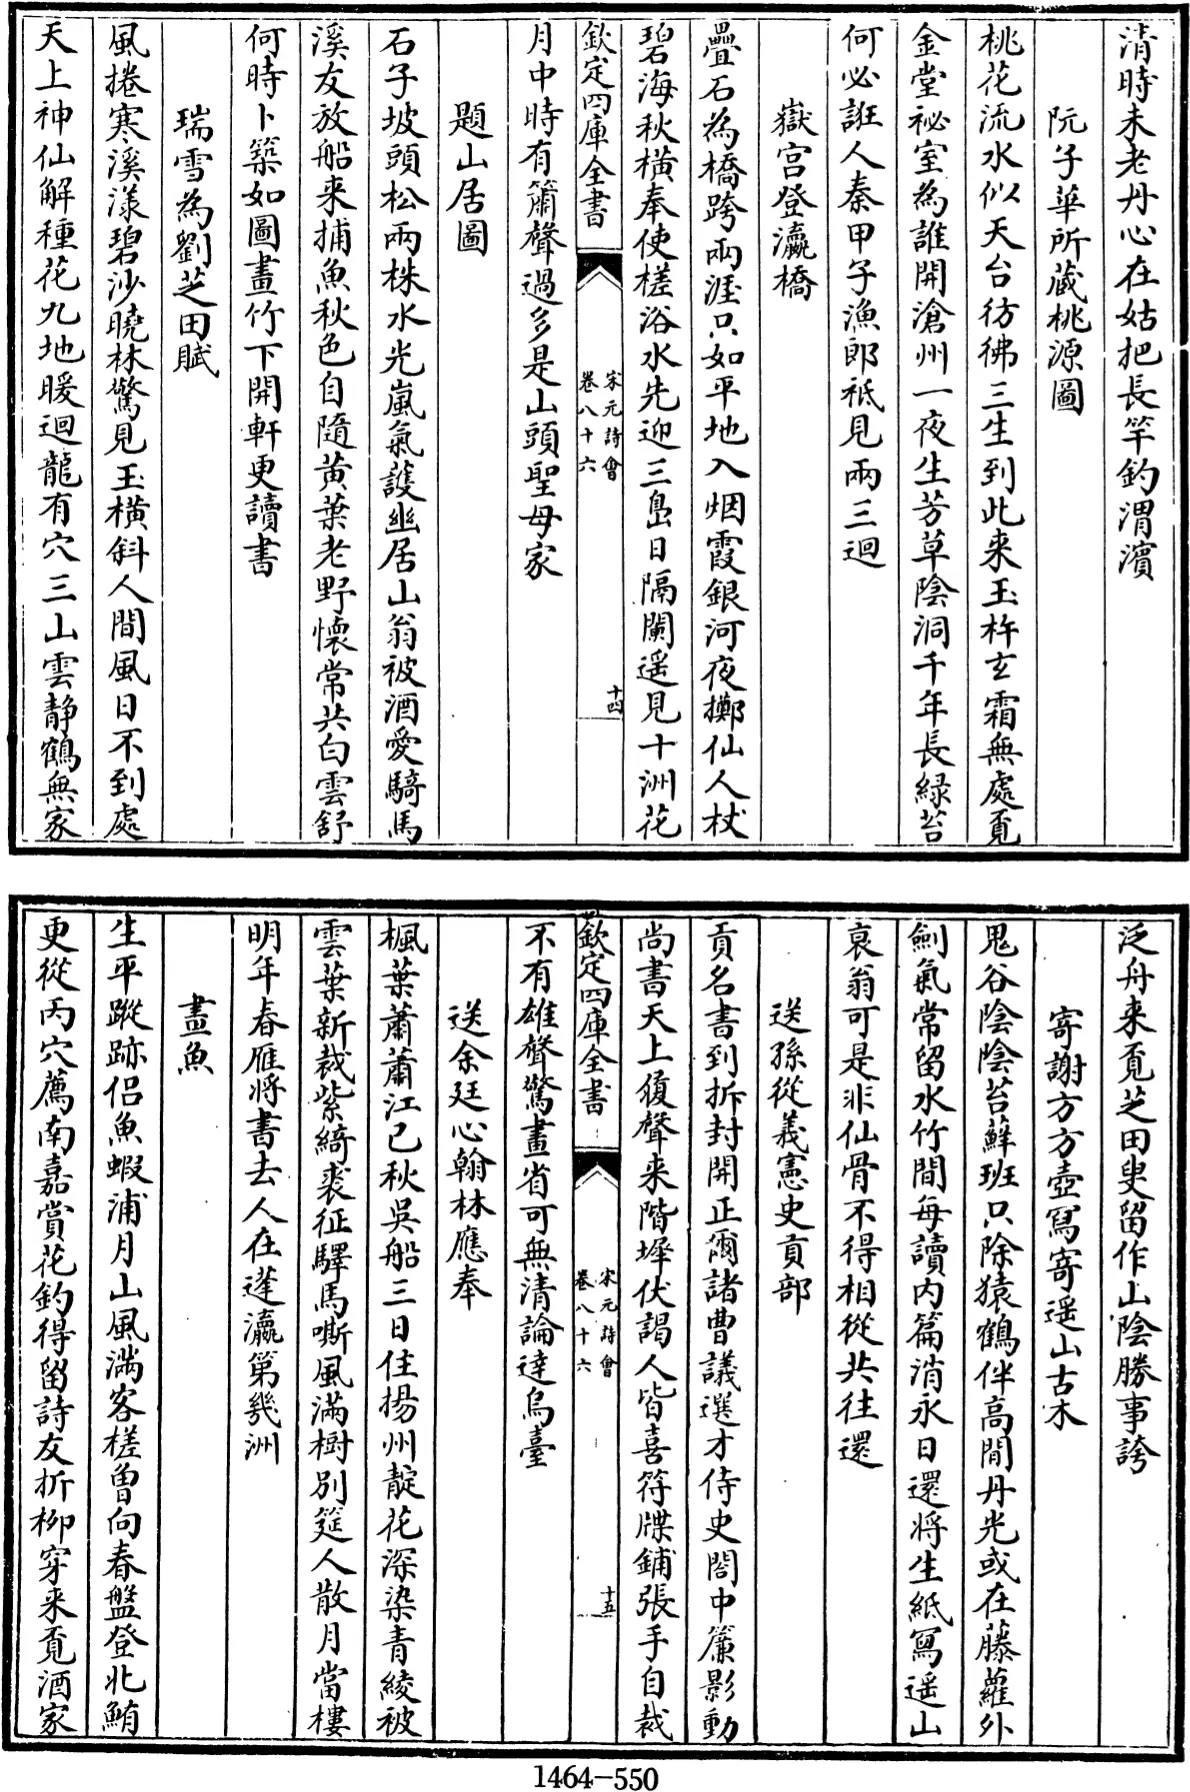 清時未老丹心在姑把長竿釣渭濱
阮子華所藏桃源圖
桃花流水似天台彷彿三生到此来玉杵玄霜無處覔
金堂祕室為誰開滄州一夜生芳草陰洞千年長緑苔
何必誑人秦甲子漁郎祗見兩三迴
嶽宫登瀛橋
疊石為橋跨兩涯只如平地入烟霞銀河夜擲仙人杖
碧海秋横奉使槎浴水先迎三島日隔闌遥見十洲花
欽定四庫全書
宋元詩會
卷八十六
十四
月中時有簫聲過多是山頭聖母家
題山居圖
石子坡頭松兩株水光嵐氣護幽居山翁被酒愛騎馬
溪友放船来捕魚秋色自隨黄葉老野懷常共白雲舒
何時卜築如圖畫竹下開軒更讀書
瑞雪為劉芝田賦
風捲寒溪漾碧沙曉林驚見玉横斜人間風日不到處
天上神仙解種花九地暖迴龍有穴三山雲静鶴無家
泛舟来覔芝田叟留作山陰勝事誇
寄謝方方壺寫寄遥山古木
鬼谷陰陰苔蘚班只除猿鶴伴高閒丹光或在藤蘿外
劍氣常留水竹間每讀内篇消永日還将生紙寫遥山
哀翁可是非仙骨不得相從共往還
送孫從義憲史貢部
貢名書到拆封開正爾諸曹議選才侍史閤中簾影動
尚書天上履聲来階墀伏謁人皆喜符牒鋪張手自裁
欽定四庫全書
宋元詩會
卷八十六
十五
不有雄聲驚畫省可無清論達烏臺
送余廷心翰林應奉
楓葉蕭蕭江已秋吳船三日住揚州靛花深染青綾被
雲葉新裁紫綺裘征驛馬嘶風滿樹别筵人散月當樓
明年春雁将書去人在蓬瀛第幾洲
畫魚
生平蹤跡侣魚蝦浦月山風满客槎曾向春盤登北鮪
更從丙穴薦南嘉賞花釣得留詩友折柳穿来覔酒家
1464-550